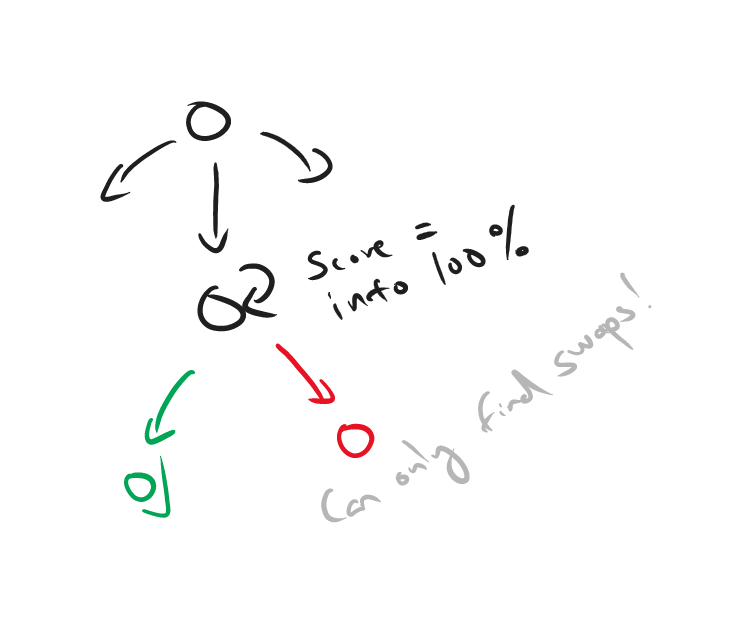 Score =
info 100%
Can only find swaps!